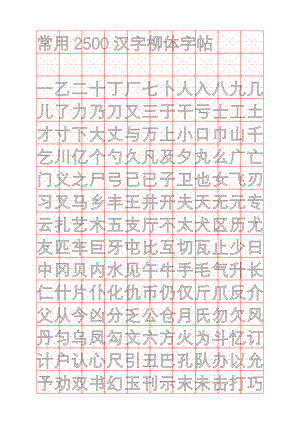 常用2500汉字柳体字帖
一乙二十丁厂七卜人入八九几
儿了力乃刀又三于干亏士工土
才寸下大丈与万上小口巾山千
乞川亿个勺久凡及夕丸么广亡
门义之尸弓己已子卫也女飞刃
习叉马乡丰王井开夫天无元专
云扎艺木五支厅不太犬区历尤
友匹车巨牙屯比互切瓦止少日
中冈贝内水见午牛手毛气升长
仁什片仆化仇币仍仅斤爪反介
父从今凶分乏公仓月氏勿欠风
丹匀乌凤勾文六方火为斗忆订
计户认心尺引丑巴孔队办以允
予劝双书幻玉刊示末未击打巧